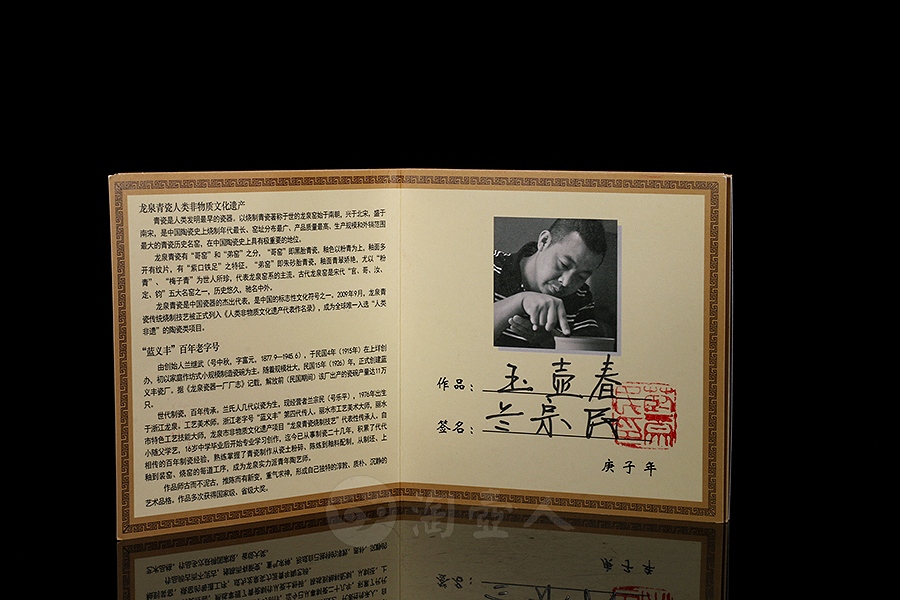 龙泉青瓷人类非物质文化遗产
青瓷是人类发明最早的瓷器。以烧制青瓷著称于世的龙泉窑始于南朝,兴于北宋,盛于
南宋,是中国陶瓷史上烧制年代最长、窑址分布最广、产品质量最高、生产规模和外销范围
最大的青瓷历史名窑,在中国陶瓷史上具有极重要的地位。
龙泉青瓷有“哥窑”和“弟窑”之分,“哥窑”即黑胎青瓷,釉色以粉青为上,釉面多
开有纹片,有“紫口铁足”之特征。“弟窑”即朱砂胎青瓷,釉面青翠娇艳,尤以“粉
青”、“梅子青”为世人所珍,代表龙泉窑系的主流,古代龙泉窑是宋代“官、哥、汝、
定、钧”五大名窑之一,历史悠久,驰名中外。
龙泉青瓷是中国瓷器的杰出代表,是中国的标志性文化符号之一。2009年9月,龙泉青
瓷传统烧制技艺被正式列入《人类非物质文化遗产代表作名录》,成为全球唯一入选“人类
非遗”的陶瓷类项目。
“蓝义丰”百年老字号
由创始人兰继武(号中秋,字富元,1877.9—1945.6),于民国4年(1915年)在上垟创
办,初以家庭作坊式小规模制造瓷碗为主,随着规模壮大,民国15年(1926)年,正式创建蓝
义丰瓷厂。据《龙泉瓷器一厂厂志》记载,解放前(民国期间)该厂出产的瓷碗产量达11万
只。
世代制瓷,百年传承,兰氏人几代以瓷为生,现经营者兰宗民(号乐平),1976年出生
于浙江龙泉,工艺美术师,浙江老字号“蓝义丰”第四代传人,丽水市工艺美术大师,丽水
市特色工艺技能大师,龙泉市非物质文化遗产项目“龙泉青瓷烧制技艺”代表性传承人。自
小随父学艺,16岁中学毕业后开始专业学习创作,迄今已从事制瓷二十几年,积累了代代
相传的百年制瓷经验,熟练掌握了青瓷制作从瓷土粉碎、陈炼到釉料配制,从制坯、上
釉到装窑、烧窑的每道工序,成为龙泉实力派青年陶艺师。
作品师古而不泥古,推陈而有新变,重气求神,形成自己独特的淳敦、质朴、沉静的
艺术品格。作品多次获得国家级、省级大奖。
作品:玉壶春
签名:兰宗民
庚子年
淘壶人